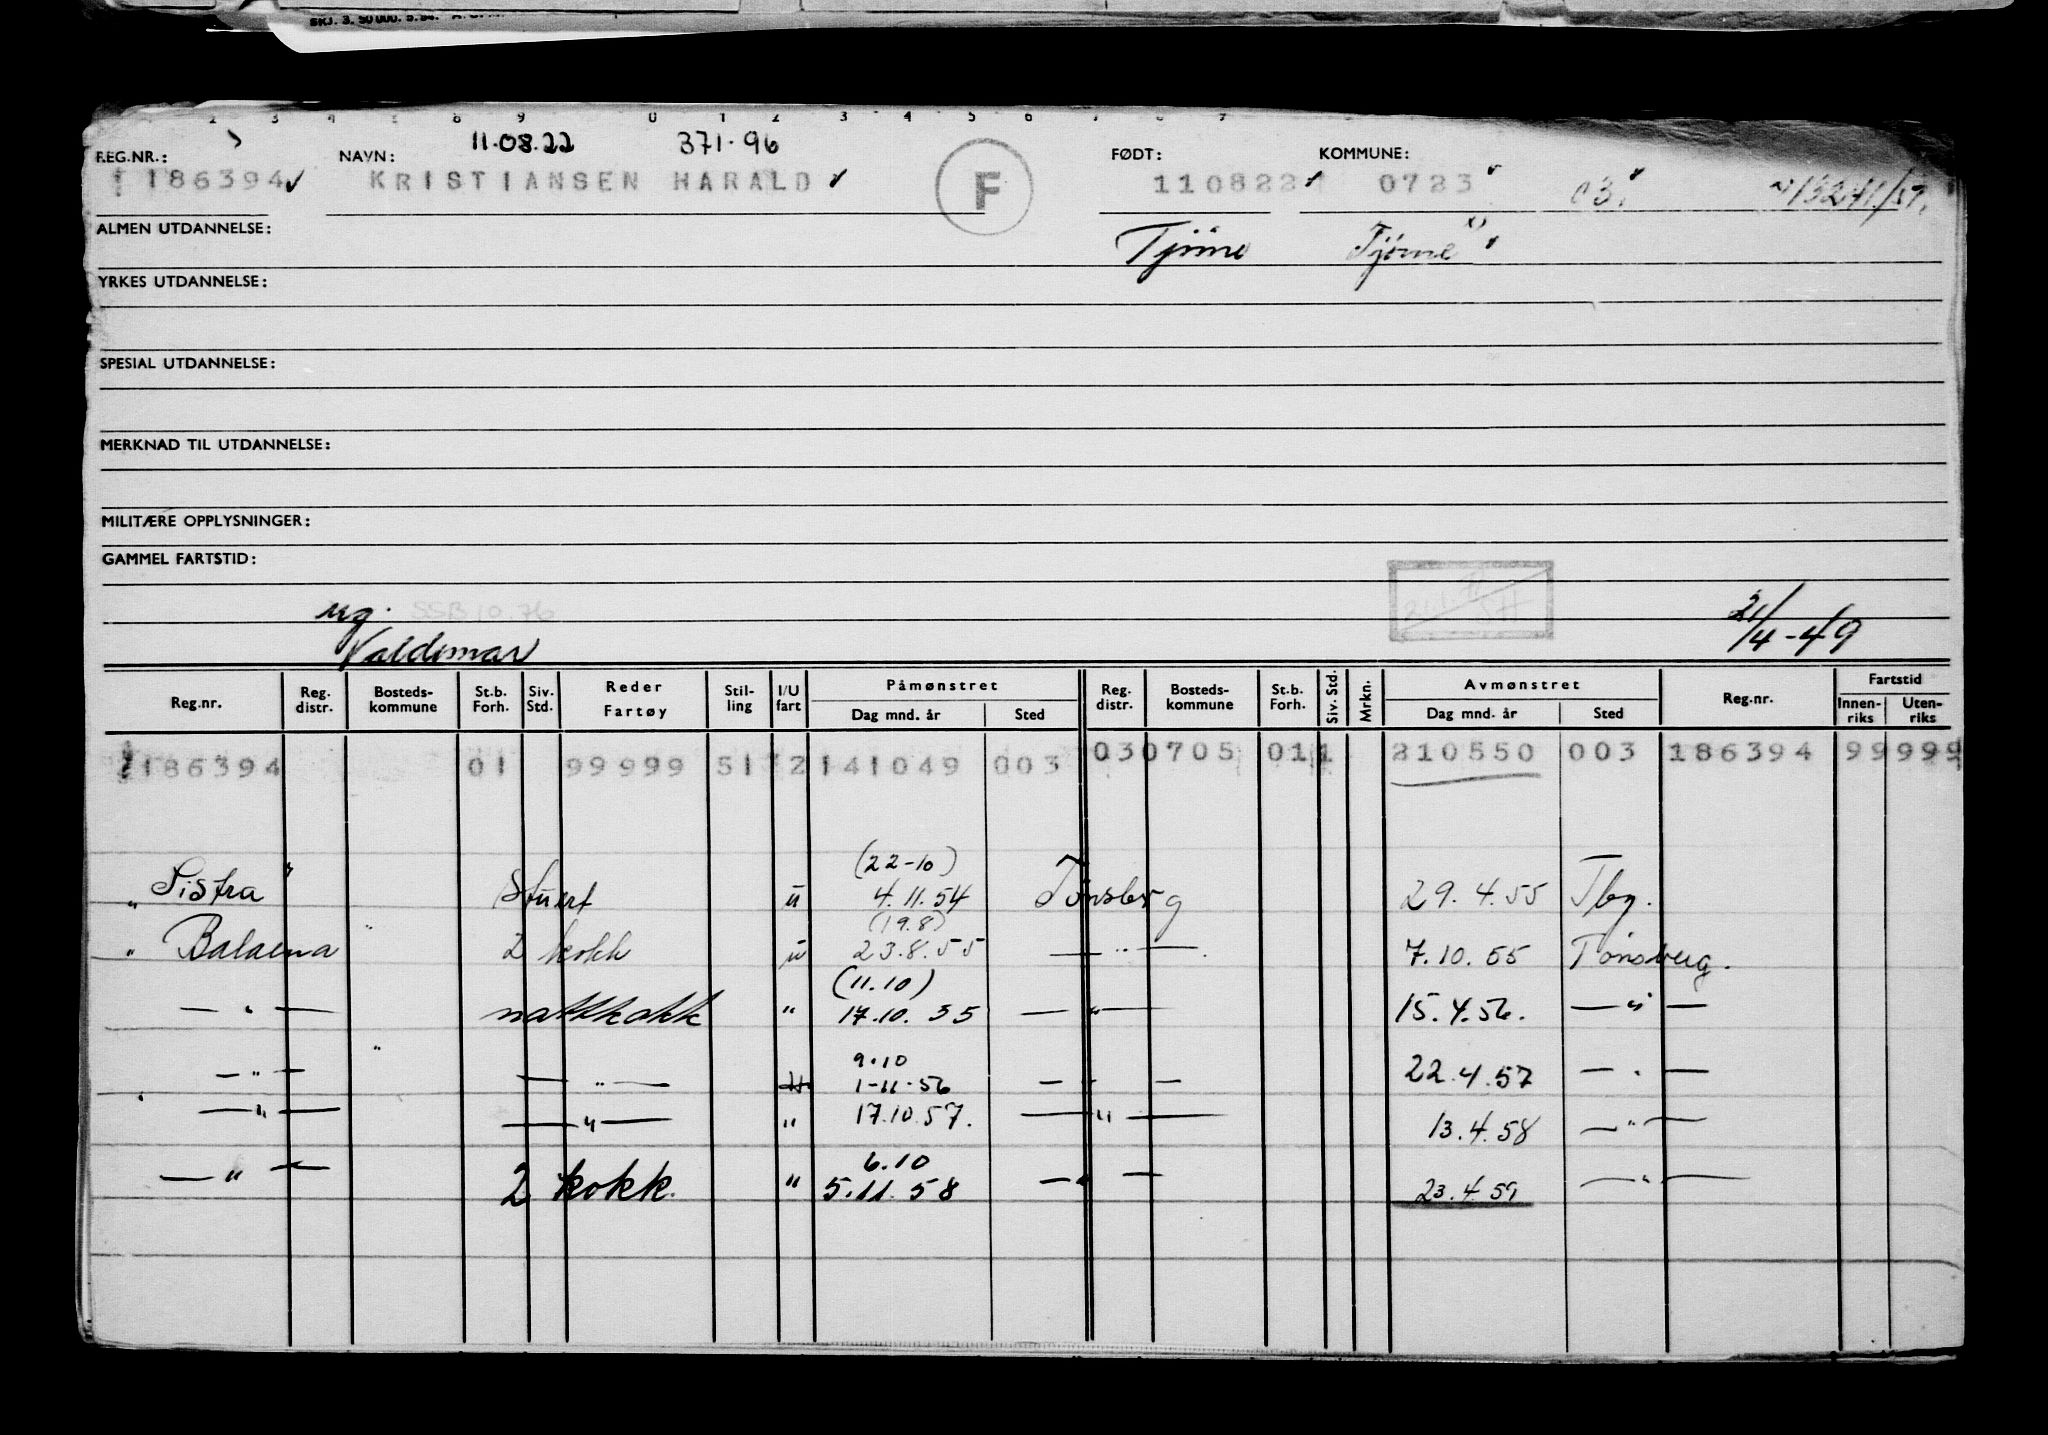 SKJ. 3. 50 000. 5. 54.
11.08.22 371.96
REG.NR.: NAVN: FØDT: KOMMUNE:
186394 KRISTIANSEN HARALD F 110822 0723 03.
ALMEN UTDANNELSE: Tjöme Tjöme
YRKES UTDANNELSE:
SPESIAL UTDANNELSE:
MERKNAD TIL UTDANNELSE:
MILITÆRE OPPLYSNINGER:
GAMMEL FARTSTID:
SSB 10.76
21/4-49
Valdemar
Reg.nr. Reg. distr. Bosteds- kommune St.b. Forh. Siv. Std. Reder Fartøy Stil- ling I/U fart Påmønstret Dag mnd. år Sted Reg. distr. Bosteds- kommune St.b. Forh. Siv. Std. Mrkn. Avmønstret Dag mnd. år Sted Reg.nr. Fartstid Innen- riks Uten- riks
186394 01 99999 51 2 141049 003 03 0705 01 1 210550 003 186394 99 999
(22-10)
"Sistra" Stuert u 4.11.54 Tönsberg 29.4.55 Tbg.
(19.8)
"Balaena" 2 kokk u 23.8.55 — " — 7.10.55 Tönsberg.
(11.10)
— " — nattkokk " 17.10.55 — " — 15.4.56. — " —
9.10
— " — — " — 1-11-56 — " — 22.4.57 — " —
— " — — " — " 17.10.57. — " — 13.4.58 — " —
6.10
— " — 2 kokk. " 5.11.58 — " — 23.4.59 — " —